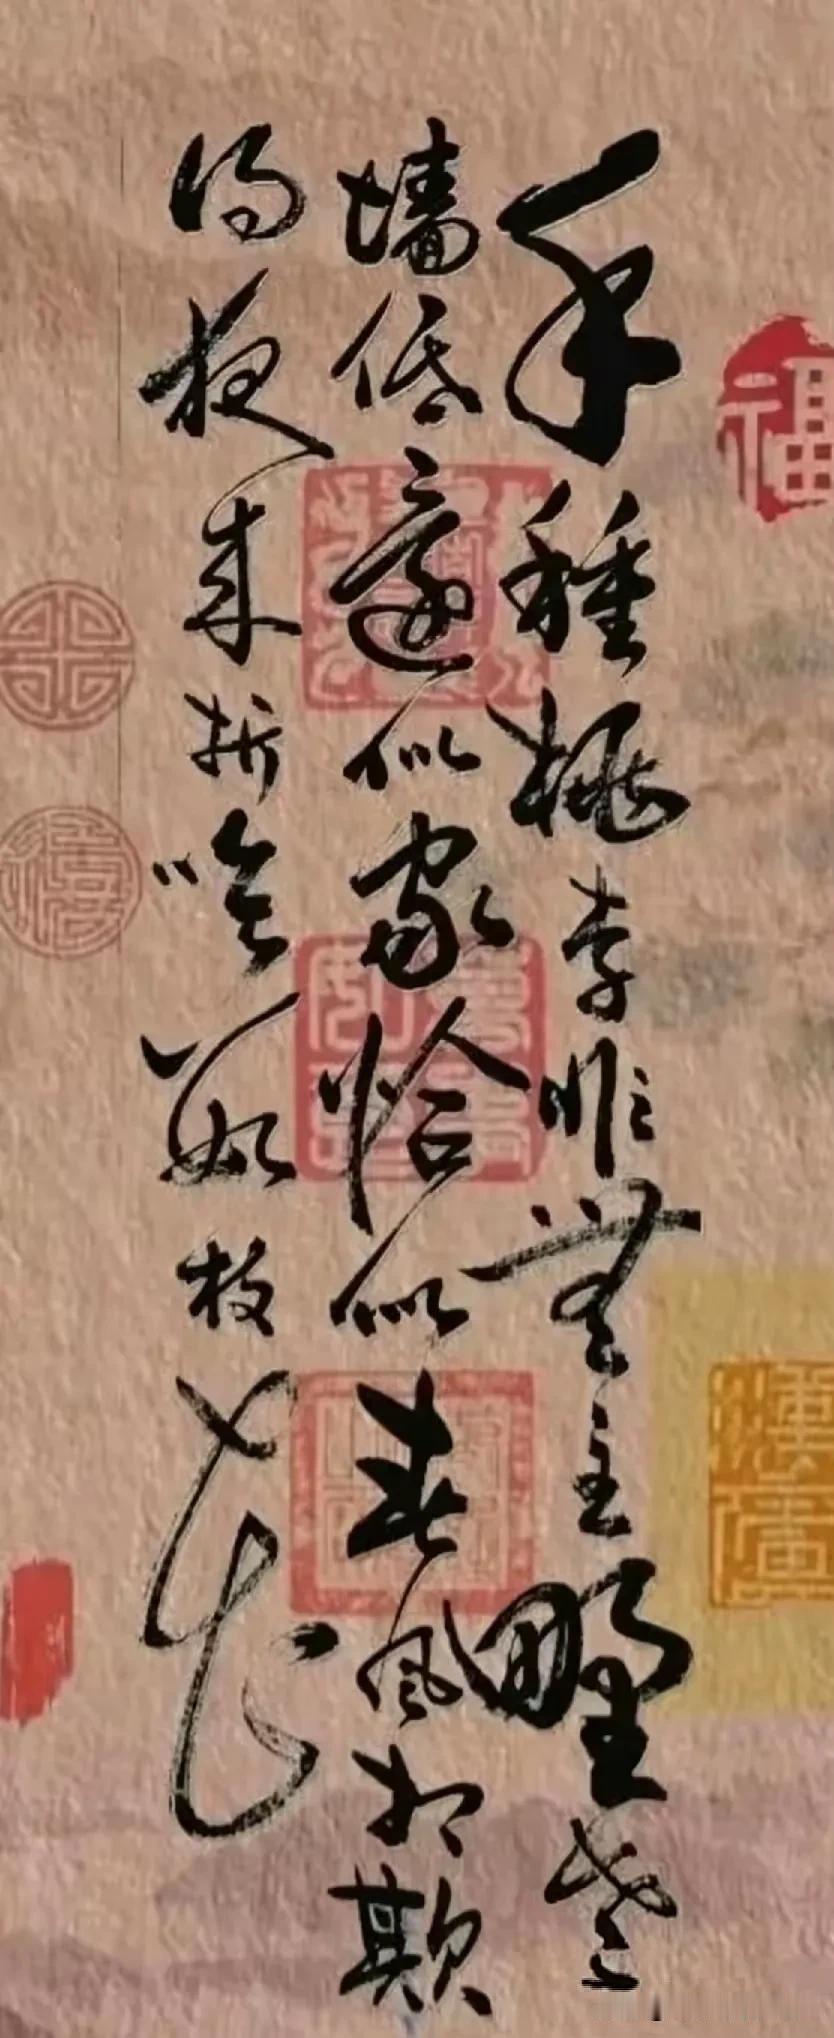 手種桃李非無主野老
墻低還似家恰似春風相欺
得夜来折吹數枝花
福